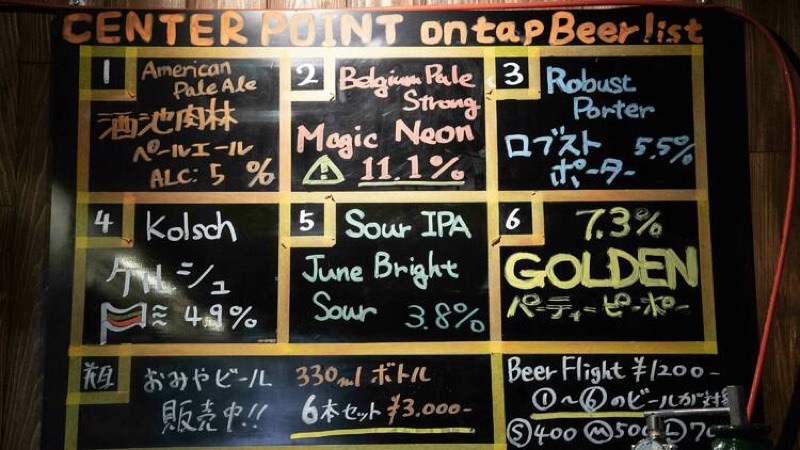 CENTER POINT on tap Beer list
1
American
Pale Ale
酒池肉林
ペールエール
ALC: 5 %
2
Belgium Pale
Strong
Magic Neon
11.1%
3
Robust
Porter
ロブスト 5.5%
ポーター
4
Kolsch
ケルシュ
4.9%
5
Sour IPA
June Bright
Sour 3.8%
6
7.3%
GOLDEN
パーティーピーポー
瓶
おみやビール 330ml ボトル
販売中!! 6本セット ¥3.000-
Beer Flight ¥1200-
①〜⑥のビールが対
Ⓢ400 Ⓜ50 Ⓛ7